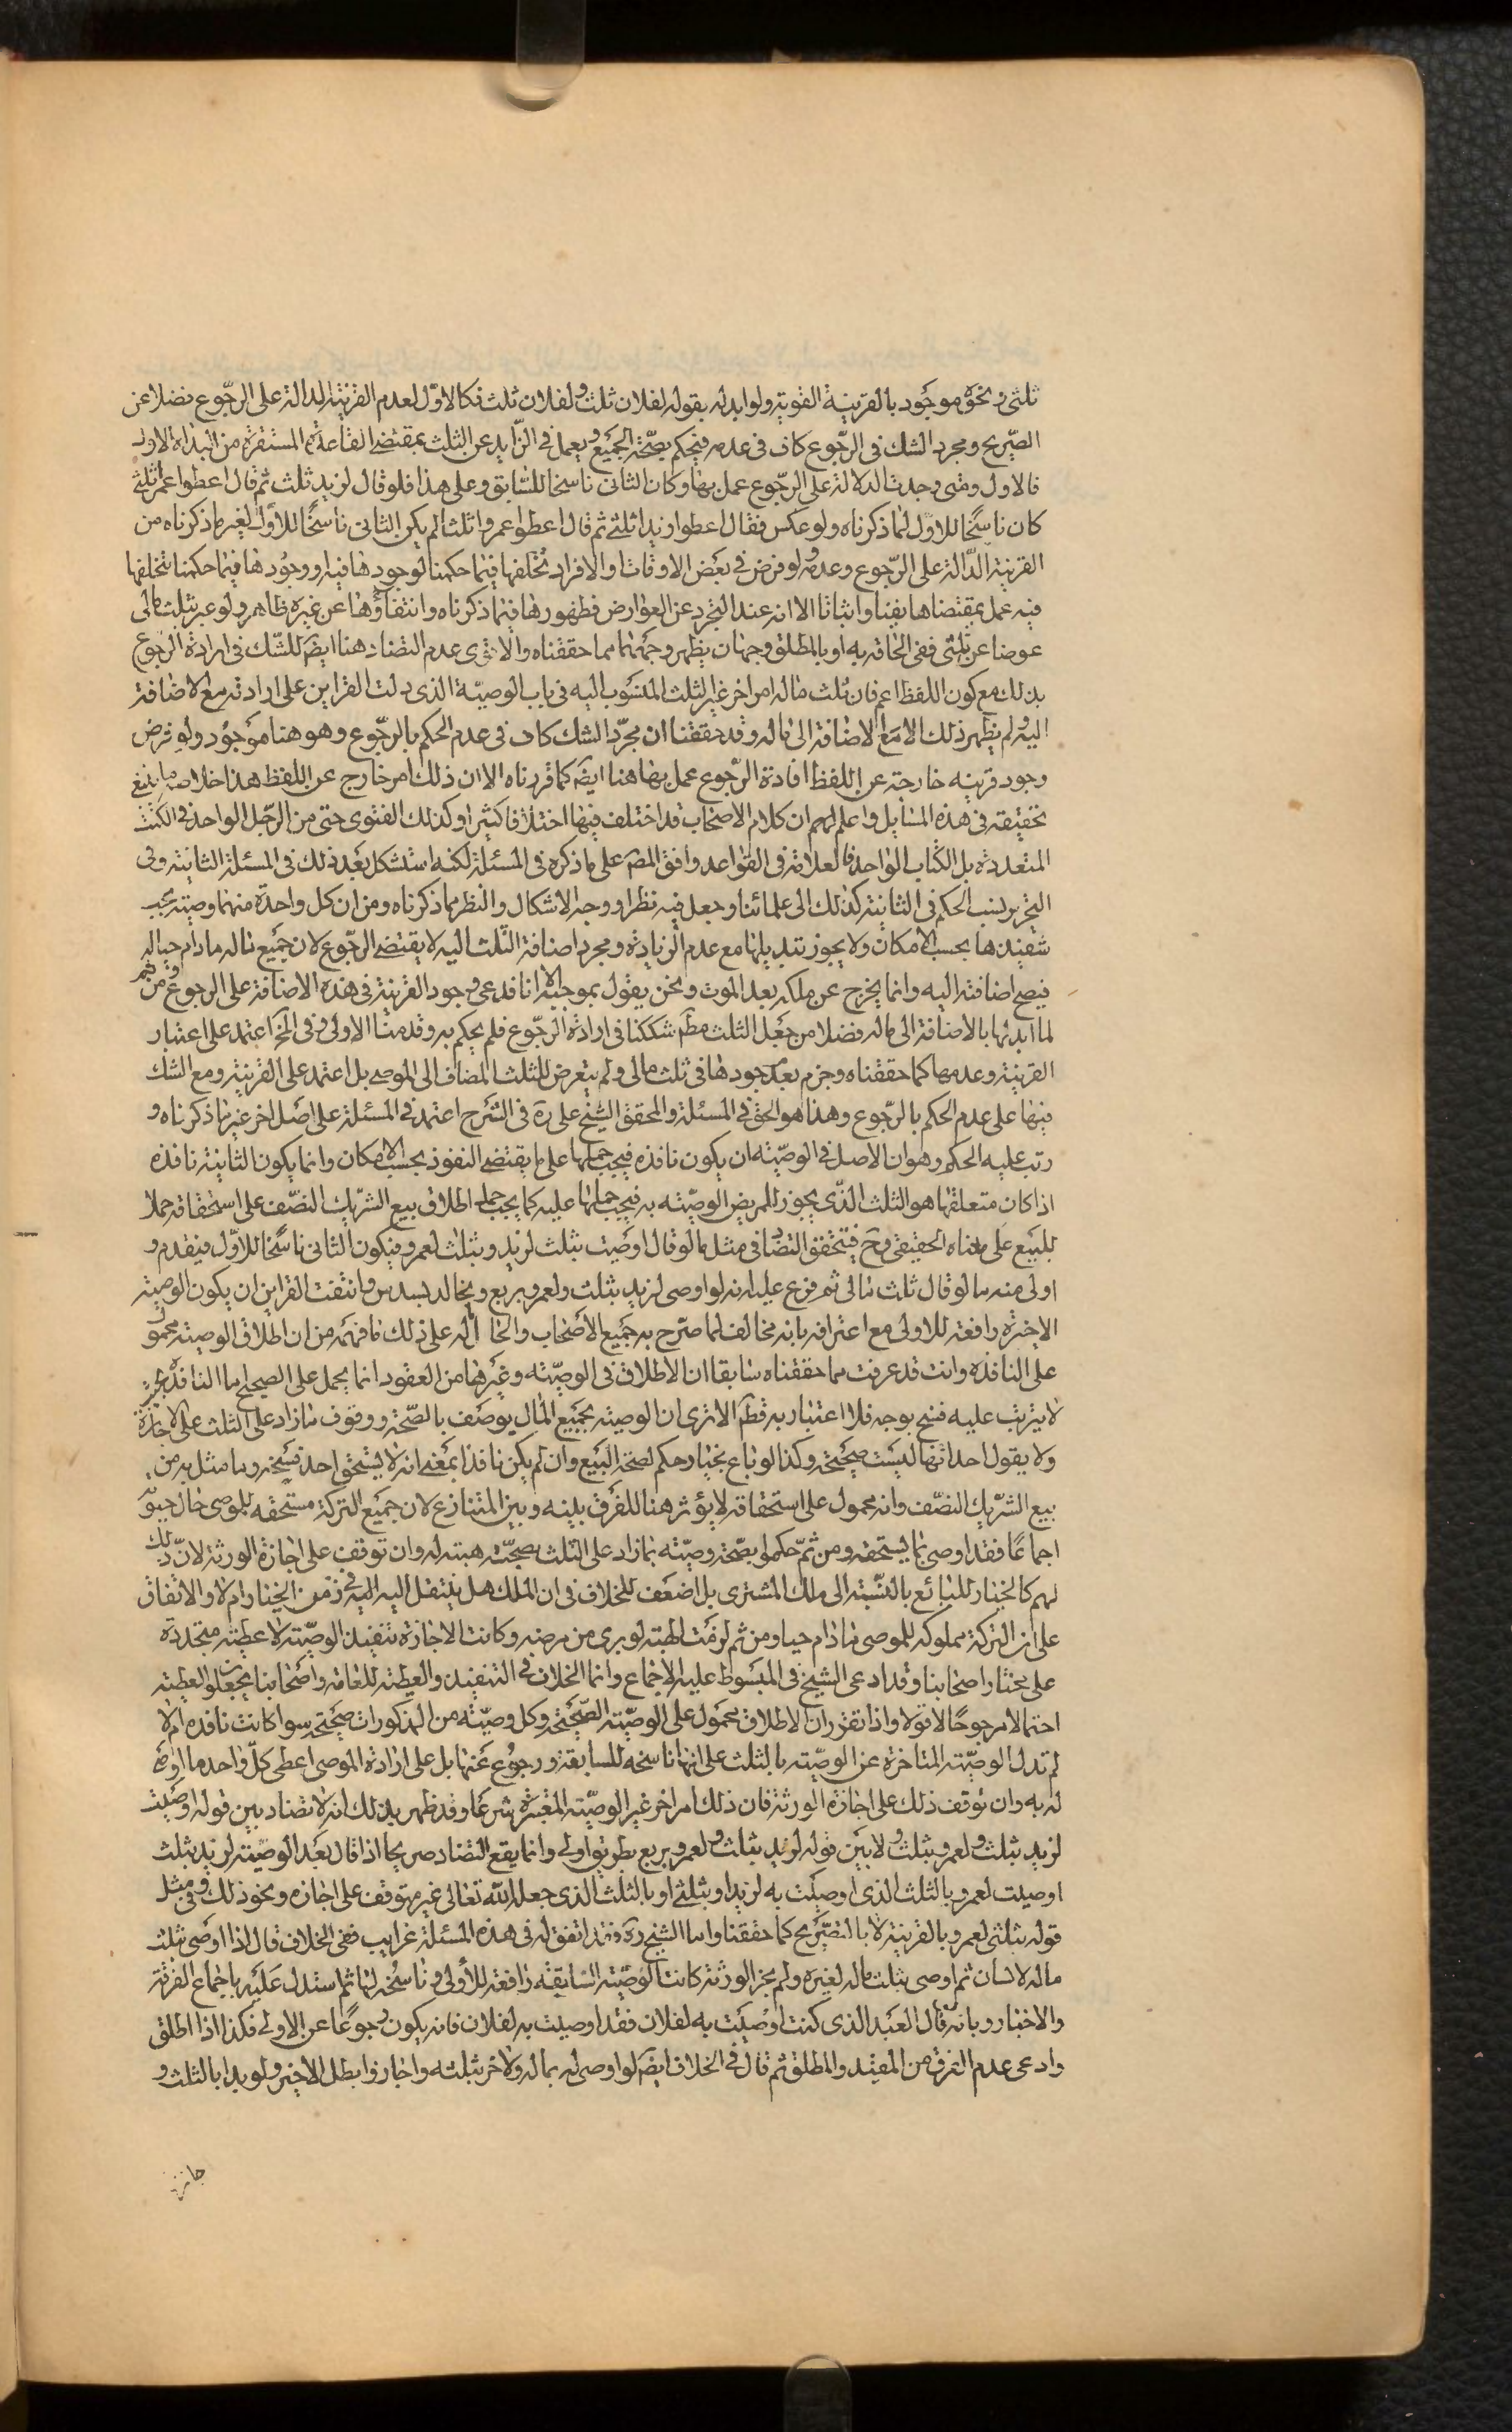 ثلثى ونحوه موجود بالقرينة القوية ولو ابدله بقوله لفلان ثلث ولفلان ثلث فكالاول لعدم القرينة الدالة على الرجوع فضلا عن
الصريح ومجرد الشك فى الرجوع كاف فى عدمه فيحكم بصحة الجميع ويعمل فى الزايد عن الثلث بمقتضى القاعدة المستقرة من البداة الاول
فالاول ومتى وجدت الدلالة على الرجوع عمل بها وكان الثانى ناسخا للسابق وعلى هذا فلو قال لزيد ثلث ثم قال اعطوا عمرا ثلثى
كان ناسخا للاول لما ذكرناه ولو عكس فقال اعطوا زيدا ثلثى ثم قال اعطوا عمروا ثلثا لم يكن الثانى ناسخا للاول لغير ما ذكرناه من
القرينة الدالة على الرجوع وعدمه ولو فرض فى بعض الاوقات والافراد تخلفها فيما حكمنا لوجودها فيه او وجودها فيما حكمنا بتخلفها
فيه عمل بمقتضاها نفيا واثباتا الا انه عند التجرد عن العوارض فظهورها فيما ذكرناه وانتفاؤها عن غيره ظاهر ولو عبر بثلث مالى
عوضا عن ثلثى ففى الحاقه به او بالمطلق وجهان يظهر وجههما مما حققناه والاقوى عدم التضاد هنا ايضا للشك فى ارادة الرجوع
بذلك مع كون اللفظ اعم فان ثلث ماله امر اخر غير الثلث المنسوب اليه فى باب الوصية الذى دلت القراين على ارادته مع الاضافة
اليه ولم يظهر ذلك الا مع الاضافة الى ماله وقد حققنا ان مجرد الشك كاف فى عدم الحكم بالرجوع وهو هنا موجود ولو فرض
وجود قرينه خارجة عن اللفظ افادة الرجوع عمل بها هنا ايضا كما قررناه الا ان ذلك امر خارج عن اللفظ هذا خلاصه ما ينبغى
تحقيقه فى هذه المسايل واعلم انهم ان كلام الاصحاب قد اختلف فيها اختلافا كثيرا وكذلك الفتوى حتى من الرجل الواحد فى الكتب
المتعددة بل الكتاب الواحد فالعلامة فى القواعد وافق المصـ على ما ذكره فى المسئلة لكنه استشكل بعد ذلك فى المسئلة الثانية وفى
التحرير نسب الحكم فى الثانية كذلك الى علمائنا وجعل فيه نظرا ووجه الاشكال والنظر مما ذكرناه ومن ان كل واحدة منهما وصية يجب
تنفيذها بحسب الامكان ولا يجوز تبديلها مع عدم الزيادة ومجرد اضافة الثلث اليه لا يقتضى الرجوع لان جميع ماله مادام حيا له
فيصح اضافته اليه وانما يخرج عن ملكه بعد الموت ونحن يقول بموجبه الا انا قد عى وجود القرينة فى هذه الاضافة على الرجوع ومن ثم
لما ابدلها بالاضافة الى ماله فضلا من جعل الثلث مطـ شككنا فى ارادة الرجوع فلم يحكم به وقدمنا الاولى وفى لخ اعتمد على اعتبار
القرينة وعدمها كما حققناه وجزم بعدم وجودها فى ثلث مالى ولم يتعرض للثلث المضاف الى الموصى بل اعتمد على القرينة ومع الشك
فيها على عدم الحكم بالرجوع وهذا هو الحق فى المسئلة والمحقق الشيخ على ره فى الشرح اعتمد فى المسئلة على اصل اخر غير ما ذكرناه و
رتب عليه الحكم وهو ان الاصل فى الوصية ان يكون نافذه فيجب حملها على ما يقتضى النفوذ بحسب الامكان وانما يكون الثانية نافذه
اذا كان متعلقها هو الثلث الذى يجوز للمريض الوصية به فيجب حملها عليه كما يجب حمل اطلاق بيع الشريك النصف على استحقاقه حملا
للبيع على معناه الحقيقى وح فيتحقق التضاد فى مثل ما لو قال اوصيت بثلث لزيد وبثلث لعمرو فيكون الثانى ناسخا للاول فيقدم و
اولى منه ما لو قال ثلث مالى ثم فرع عليه انه لو اوصى لزيد بثلث ولعمرو بربع ولخالد بسدس وانتفت القراين ان يكون الوصية
الاخيرة رافعة للاولى مع اعترافه بانه مخالف لما صرح به جميع الاصحاب والحامل له على ذلك ما فهمه من ان اطلاق الوصية محمول
على النافذه وانت قد عرفت مما حققناه سابقا ان الاطلاق فى الوصية وغيرها من العقود انما يحمل على الصحيح اما النافذ بحيث
لا يترتب عليه فسخ بوجه فلا اعتبار به قطـ الا ترى ان الوصية بجميع المال يوصف بالصحة ووقوف ما زاد على الثلث على الاجازة
ولا يقول احد انها ليست صحيحة وكذا لو باع بخيار حكم لصحة البيع وان لم يكن نافذا بمعنى انه لا يستحق احد فسخه وما مثل به من
بيع الشريك النصف وانه محمول على استحقاقه لا يؤثر هنا للفرق بينه وبين المتنازع لان جميع التركة مستحقه للموصى حال حيوته
اجماعا فقد اوصى بما يستحقه ومن ثم حكموا بصحة وصيته بما زاد على الثلث بصحة هبته له وان توقف على اجازة الورثة لان ذلك
لهم كالخيار للبائع بالنسبة الى ملك المشترى بل اضعف للخلاف فى ان الملك هل ينتقل اليه المبيع فى زمن الخيار ام لا والاتفاق
على ان التركة مملوكه للموصى مادام حيا ومن ثم لزمت الهبة لو برى من مرضه وكانت الاجازة تنفيذ الوصية لا عطية متجددة
على مختار اصحابنا وقد ادعى الشيخ فى المبسوط عليه الاجماع وانما الخلاف فى التنفيذ والعطية للعامة واصحابنا يجعلوا العطية
احتمالا مرجوحا لا قولا واذا تقرر ان الاطلاق محمول على الوصية الصحيحة وكل وصية من المذكورات صحيحة سوا كانت نافذه ام لا
لم تدل الوصية المتاخرة عن الوصية بالثلث على انها ناسخه للسابقة ورجوع عنها بل على ارادة الموصى اعطى كل واحد ما اوصى
له به وان توقف ذلك على اجازة الورثة فان ذلك امر اخر غير الوصية المعتبرة شرعا وقد ظهر بذلك انه لا تضاد بين قوله اوصيت
لزيد بثلث ولعمرو بثلث ولا بين قوله لزيد بثلث ولعمرو بربع بطريق اولى وانما يقع التضاد صريحا اذا قال بعد الوصية لزيد بثلث
اوصيت لعمرو بالثلث الذى اوصيت به لزيد او بثلثى او بالثلث الذى جعله الله تعالى غير متوقف على اجازه ونحو ذلك وفى مثل
قوله بثلثى لعمرو بالقرينة لا بالتصريح كما حققنا واما الشيخ ره فقد اتفق له فى هذه المسئلة غرايب ففى الخلاف قال اذا اوصى بثلث
ماله لانسان ثم اوصى بثلث ماله لغيره ولم يجز الورثة كانت الوصية السابقه رافعة للاولى وناسخه لها ثم استدل عليه باجماع الفرقة
والاخبار وبانه قال العبد الذى كنت اوصيت به لفلان فقد اوصيت به لفلان فانه يكون رجوعا عن الاولى فكذا اذا اطلق
وادعى عدم الفرق من المقيد والمطلق ثم قال فى الخلاف ايضا لو اوصى له بماله ولاخر بثلثه واجازوا بطل الاخير ولو بدا بالثلث و